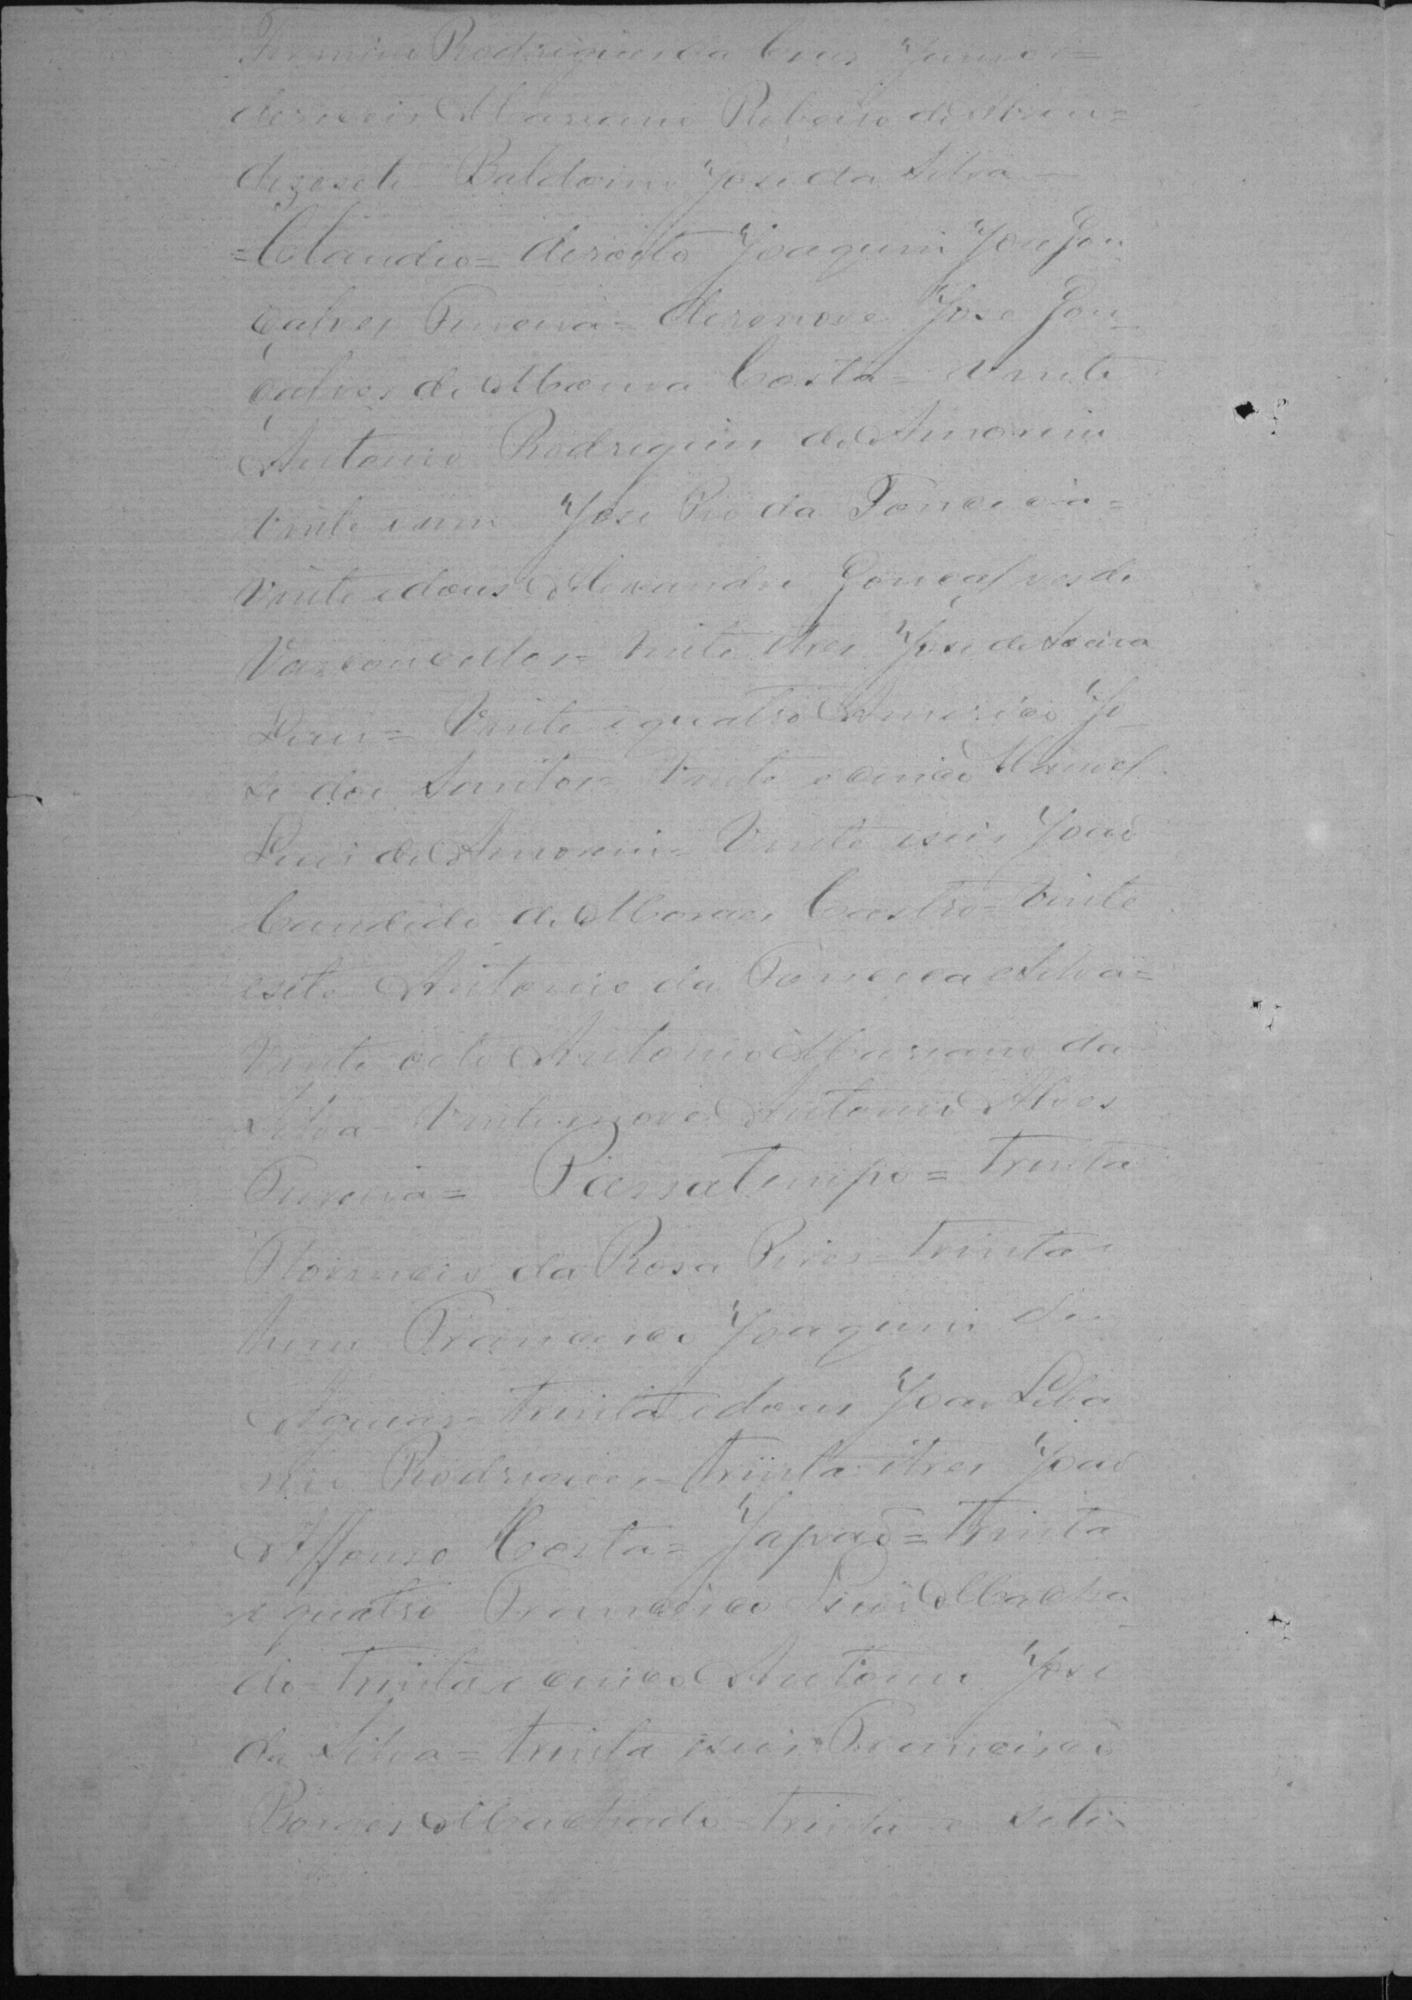 Firmino Rodrigues da Cruz Junior=
deseseis Marianno Ribeiro de Abreu=
dezesete Baldoino Jose da Silva
=Claudio= desoito Joaquim Jose Gon
çalves Pereira= desenove Jose Gon
çalves de Moura Costa= Vinte
Antonio Rodrigues de Amorim
Vinte eum Jose Pio da Fonceca=
Vinte edous Alexandre Gonçalves de
Vasconcellos= Vinte etres Jose de Souza
Luis= Vinte equatro Americo Jo
se dos Santos= Vinte ecinco Manoel
Luis de Amorim= Vinte eseis Joaõ
Candido de Moraes Castro= Vinte
esete Antonio da Fonceca eSilva=
Vinte oito Antonio Marianno da
Silva= Vinte enove Antonio Alves
Pereira= Passa Tempo= Trinta
da Rosa Pires= Trinta
hum Francisco Joaquim de
Aguiar= Trinta edous Joaõ Liba
nio Rodrigues= Trinta etres Joaõ
Affonso Costa= Japaõ= Trinta
equatro Francisco Luis Macha
do= Trinta ecinco Antonio Jose
da Silva= Trinta eseis Francisco
Borges Machado= Trinta e sete